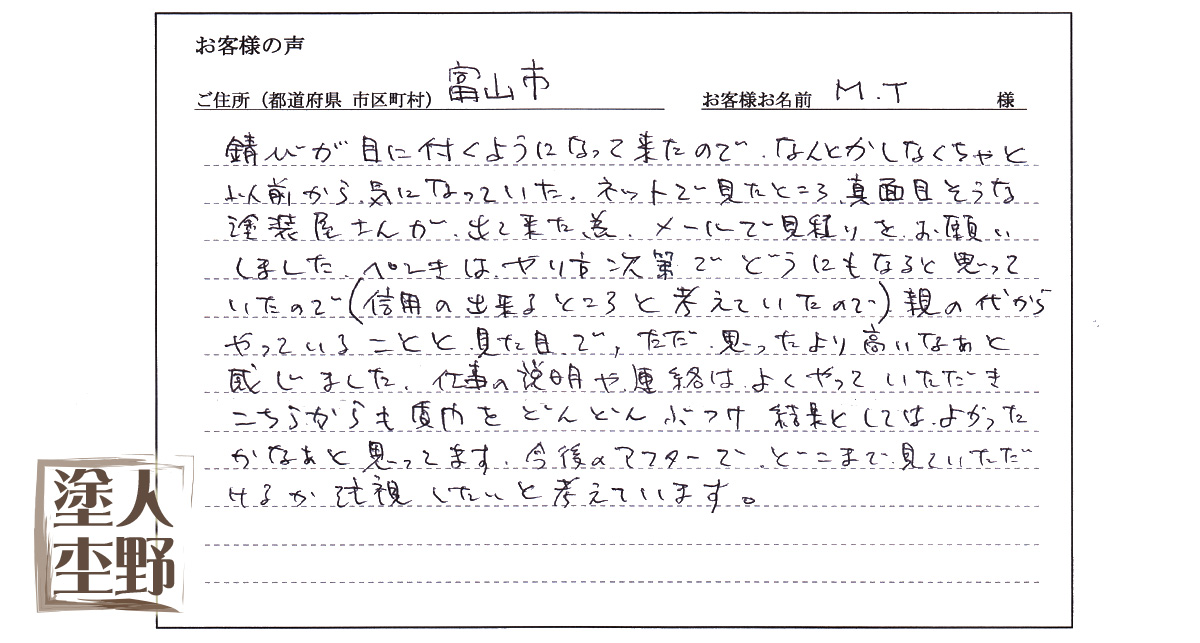 お客様の声
ご住所（都道府県 市区町村） 富山市 お客様お名前 M.T 様
錆びが目に付くようになって来たので、なんとかしなくちゃと
以前から、気になっていた。ネットで見たところ、真面目そうな
塗装屋さんが、出て来た為、メールで見積りを、お願い
しました。ペンキは、やり方次第でどうにもなると思って
いたので(信用の出来るところと考えていたので)親の代から
やっていることと、見た目で、ただ、思ったより高いなぁと
感じました。仕事の説明や、連絡は、よくやっていただき
こちらからも質問をどんどんぶつけ 結果としては、よかった
かなぁと思ってます。今後のアフターで、どこまで、見ていただ
けるか注視したいと考えています。
塗人
杢野